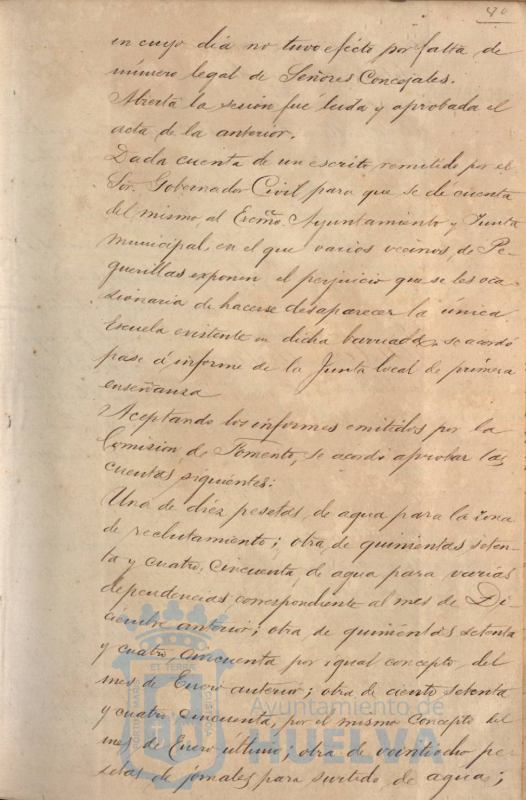 en cuyo dia no tuvo efecto por falta de
número legal de Señores Concejales.
Abierta la sesión fué leida y aprobada el
acta de la anterior.
Dada cuenta de un escrito remitido por el
Sor. Gobernador Civil para que se dé cuenta
del mismo al Excmo. Ayuntamiento y Junta
municipal, en el que varios vecinos de Pe-
guerillas exponen el perjuicio que se les oca-
sionaria de hacerse desaparecer la única
Escuela existente en dicha barriada, se acordó
pase á informe de la Junta local de primera
enseñanza
Aceptando los informes emitidos por la
Comision de Fomento, se acordó aprobar las
cuentas siguientes:
Una de diez pesetas, de agua para la zona
de reclutamiento; otra de quinientas seten-
ta y cuatro, cincuenta, de agua para varias
dependencias, correspondiente al mes de Di-
ciembre anterior; otra de quinientas setenta
y cuatro, cincuenta por igual concepto del
mes de Enero anterior; otra de ciento setenta
y cuatro, cincuenta, por el mismo concepto del
mes de Enero último; otra de veintiocho pe-
setas de jornales para surtido de aguas;
ET TERRA
Ayuntamiento de
HUELVA